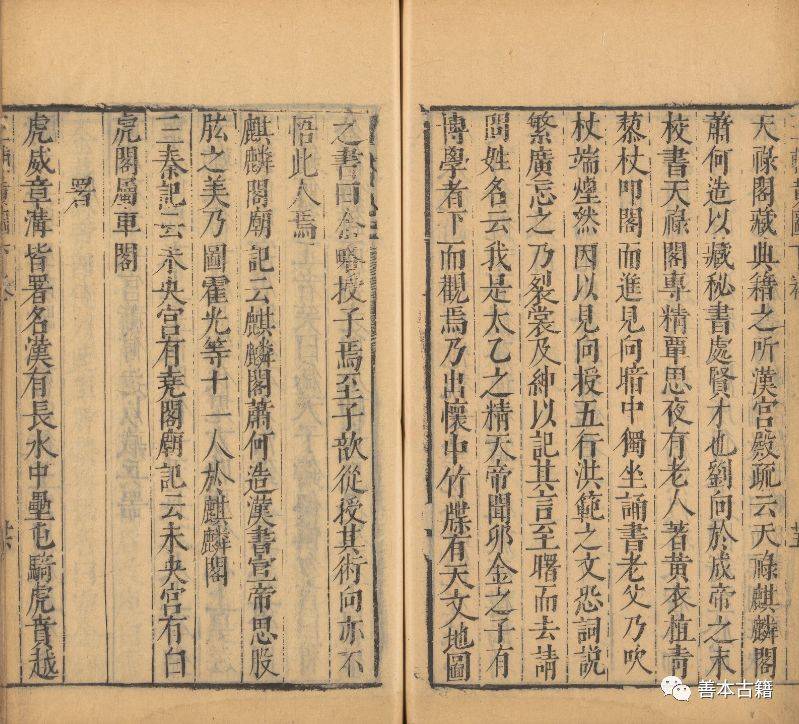 天祿閣藏典籍之所漢宮殿疏云天祿麒麟閣
蕭何造以藏秘書處賢才也劉向於成帝之末
校書天祿閣專精覃思夜有老人著黃衣植青
藜杖叩閣而進見向暗中獨坐誦書老父乃吹
杖端煙然因以見向授五行洪範之文恐詞說
繁廣忘之乃裂裳及紳以記其言至曙而去請
問姓名云我是太乙之精天帝聞卯金之子有
博學者下而觀焉乃出懷中竹牒有天文地圖
之書曰余略授子焉至子歆從授其術向亦不
悟此人焉
麒麟閣廟記云麒麟閣蕭何造漢書宣帝思股
肱之美乃圖霍光等十一人於麒麟閣
三秦記云未央宮有堯閣廟記云未央宮有白
虎閣屬車閣
署
虎威章溝皆署名漢有長水中壘屯騎虎賁越
善本古籍